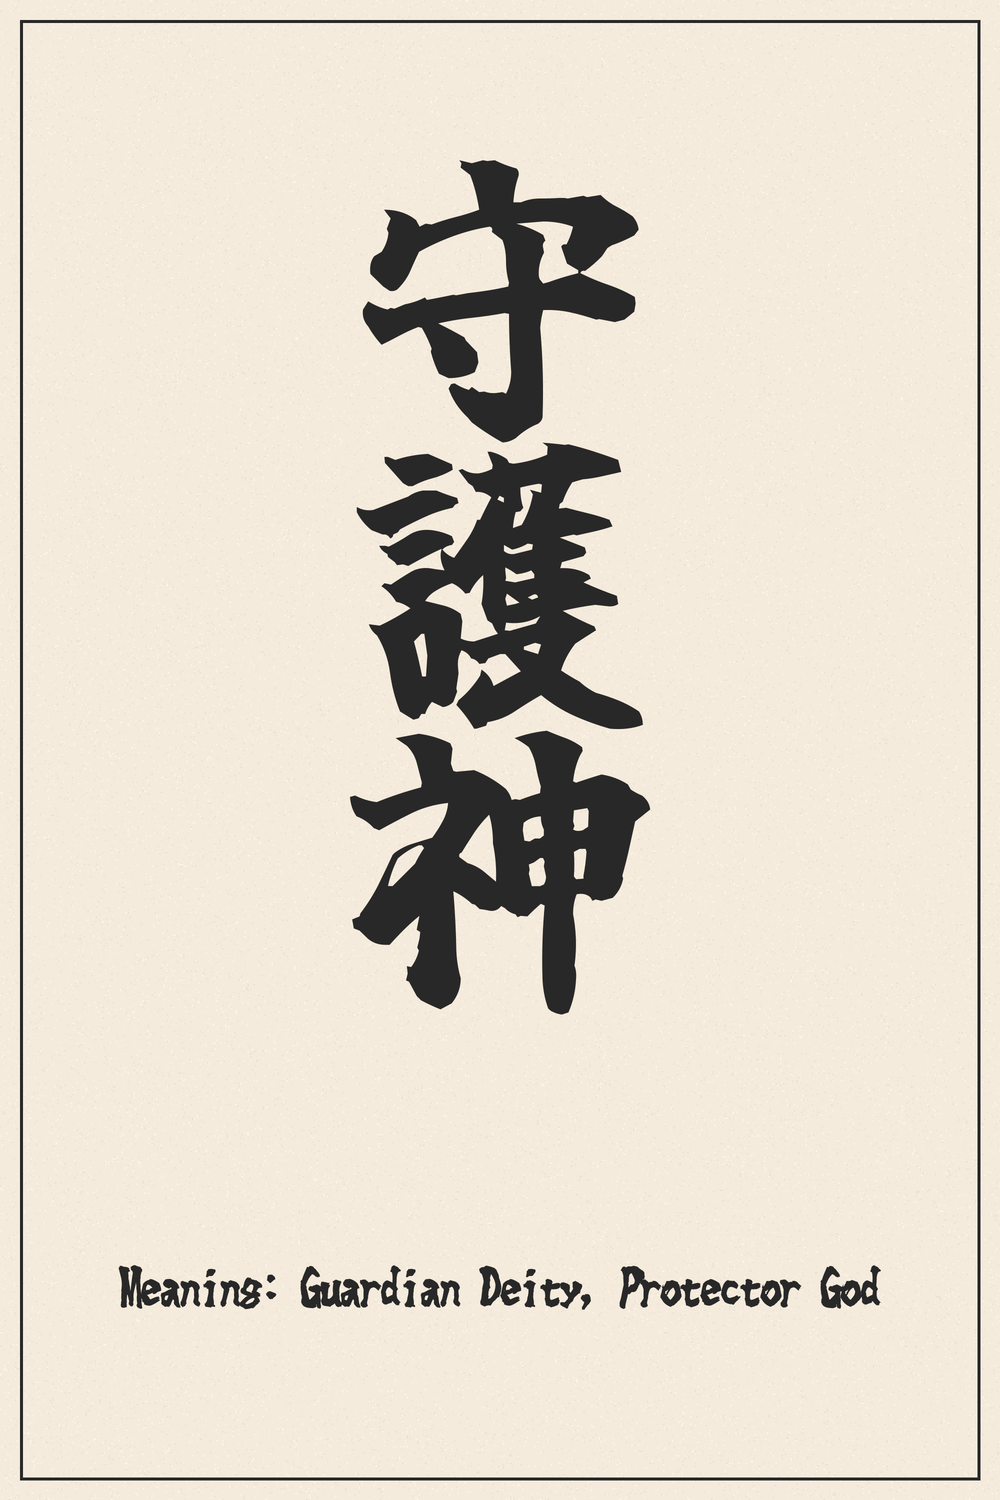 守護神
Meaning: Guardian Deity, Protector God